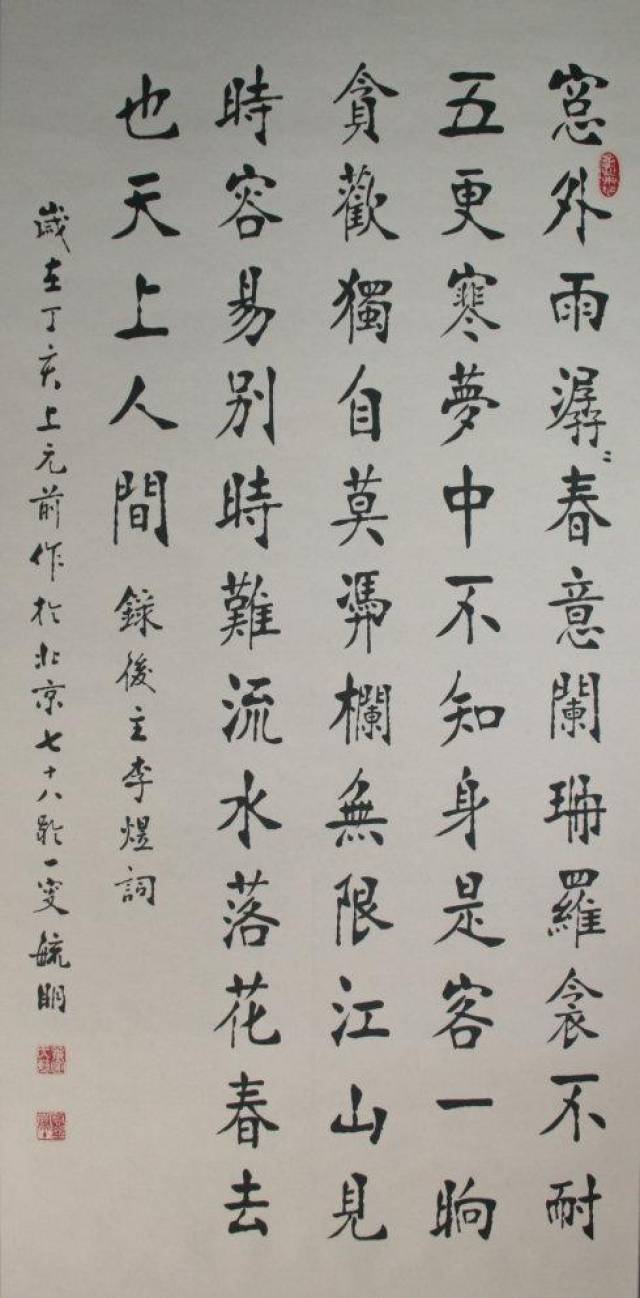 窓外雨潺〻春意闌珊羅衾不耐
五更寒夢中不知身是客一晌
貪歡獨自莫憑欄無限江山見
時容易別時難流水落花春去
也天上人間 錄後主李煜詞
歲在丁亥上元前作於北京七十八齡一叟毓明